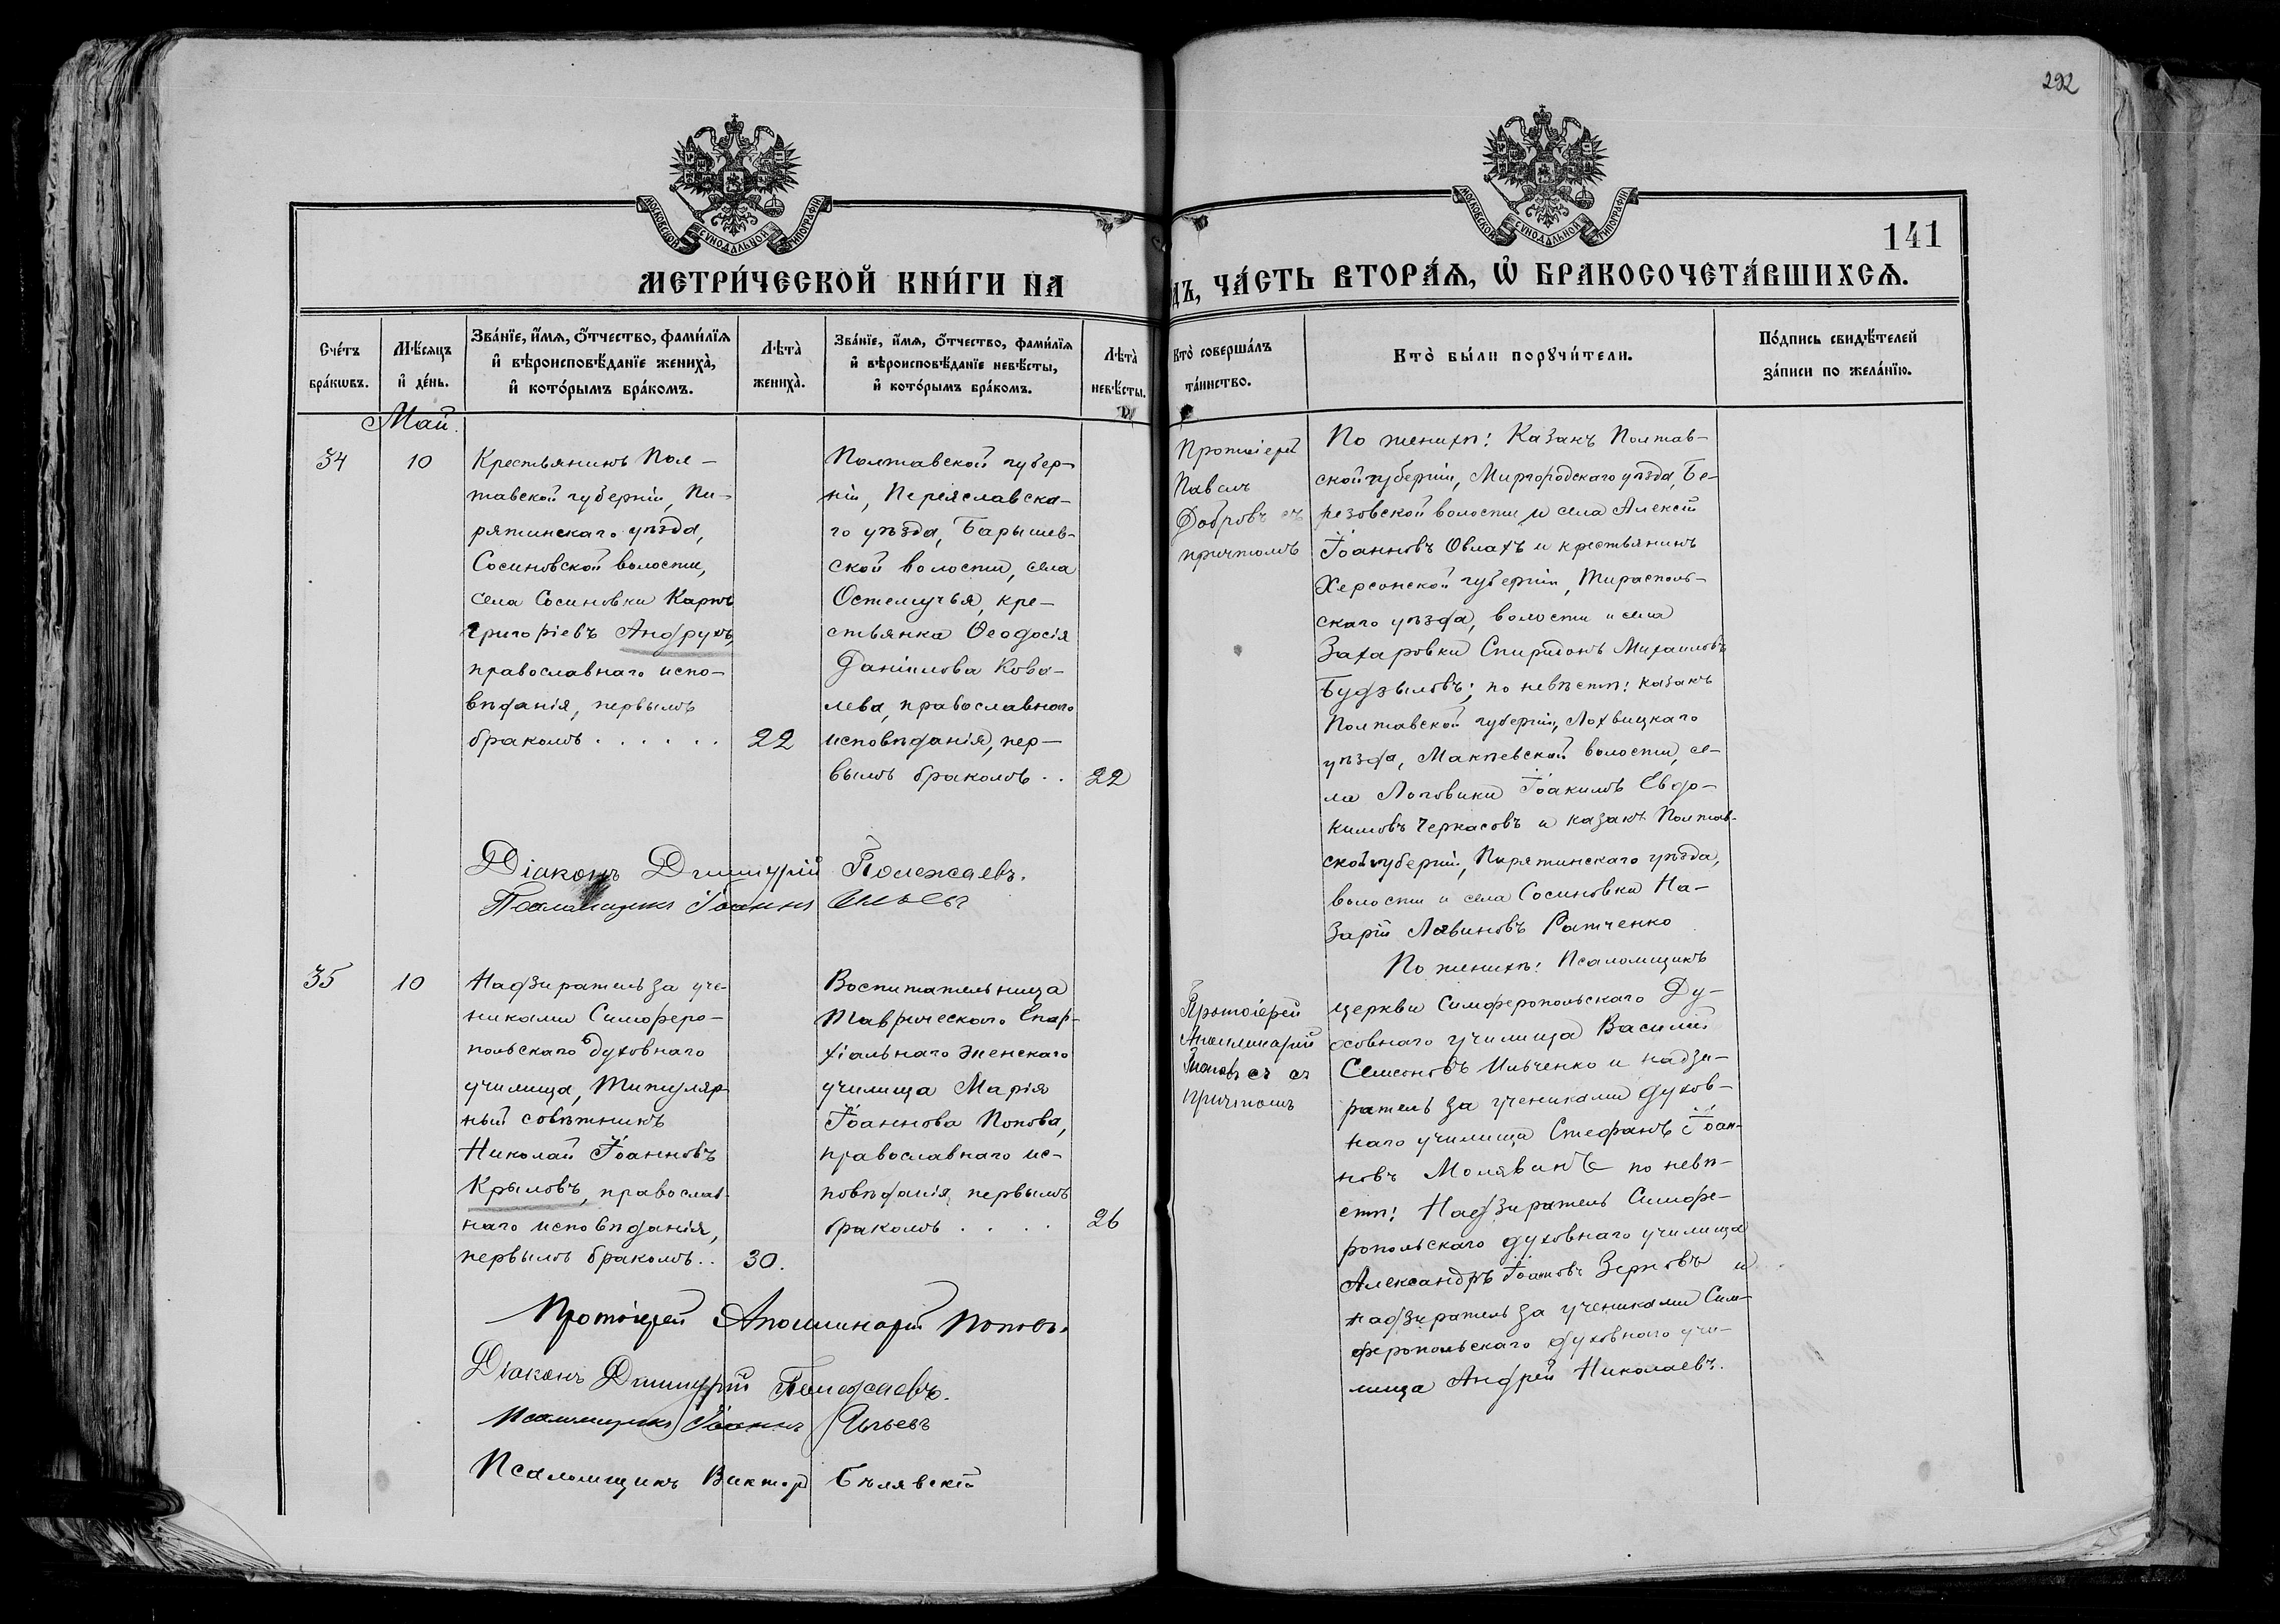 292
МОСКОВСКОЙ СУНОДАЛЬНОЙ ТИПОГРАФІИ
МОСКОВСКОЙ СУНОДАЛЬНОЙ ТИПОГРАФІИ
141
МЕТРИ́ЧЕСКОЙ КНИ́ГИ НА
ДЪ, ЧА́СТЬ ВТОРА́Ѧ, Ѡ БРАКОСОЧЕТА́ВШИХСѦ.
Сче́тъ бра́кѡвъ.
Мѣ́сяцъ и҆ де́нь.
Зва́нїе, и҆́мѧ, ѻ҆́тчество, фами́лїѧ
и҆ вѣроисповѣ́данїе жениха̀,
и҆ кото́рымъ бра́комъ.
Лѣта̀ жениха̀.
Зва́нїе, и҆́мѧ, ѻ҆́тчество, фами́лїѧ
и҆ вѣроисповѣ́данїе невѣ́сты,
и҆ кото́рымъ бра́комъ.
Лѣта̀ невѣ́сты.
Кто̀ соверша́лъ та́инство.
Кто̀ бы́ли порꙋчи́тели.
По́дпись свидѣ́телей
за́писи по жела́нїю.
Май.
34
10
Крестьянинъ Пол-
тавской губерніи, Пи-
рятинскаго уѣзда,
Сосиновской волости,
села Сосиновки Карпъ
Григоріевъ Андрухъ,
православнаго испо-
вѣданія, первымъ
бракомъ . . . . . .
22
Полтавской губер-
ніи, Переяславска-
го уѣзда, Барышев-
ской волости, села
Остемучья, кре-
стьянка Ѳеодосія
Даніилова Кова-
лева, православнаго
исповѣданія, пер-
вымъ бракомъ . .
22
Протоіерей
Павелъ
Добровъ съ
причтомъ
По женихѣ: Казакъ Полтав-
ской губерніи, Миргородскаго уѣзда, Бе-
резовской волости и села Алексій
Іоанновъ Овлахъ и крестьянинъ
Херсонской губерніи, Тирасполь-
скаго уѣзда, волости и села
Захаровки Спиридонъ Михаиловъ
Будзыловъ; по невѣстѣ: казакъ
Полтавской губерніи, Лохвицкаго
уѣзда, Макѣевской волости, се-
ла Логовики Іоакимъ Евдо-
кимовъ Черкасовъ и казакъ Полтав-
ской губерніи, Пирятинскаго уѣзда,
волости и села Сосиновки На-
зарій Лавиновъ Ратченко
Діаконъ Димитрій Полежаевъ.
Псаломщикъ Іоаннъ Ильевъ
35
10
Надзиратель за уче-
никами Симферо-
польскаго духовнаго
училища, Титуляр-
ный совѣтникъ
Николай Іоанновъ
Крыловъ, православ-
наго исповѣданія,
первымъ бракомъ . .
30.
Воспитательница
Таврическаго Епар-
хіальнаго женскаго
училища Марія
Іоаннова Попова,
православнаго ис-
повѣданія, первымъ
бракомъ . . . .
26
Протоіерей
Аполлинарій
Поповъ съ
причтомъ
По женихѣ: Псаломщикъ
церкви Симферопольскаго Ду-
ховнаго училища Василій
Семеновъ Ильченко и надзи-
ратель за учениками духов-
наго училища Стефанъ Іоан-
новъ Молявинъ по невѣ-
стѣ: Надзиратель Симфе-
ропольскаго духовнаго училища
Александръ Іоанновъ Зерновъ и
надзиратель за учениками Сим-
феропольскаго духовнаго учи-
лища Андрей Николаевъ.
Протоіерей Аполлинарій Поповъ.
Діаконъ Димитрій Полежаевъ.
Псаломщикъ Іоаннъ Ильевъ
Псаломщикъ Викторъ Бѣлявскій